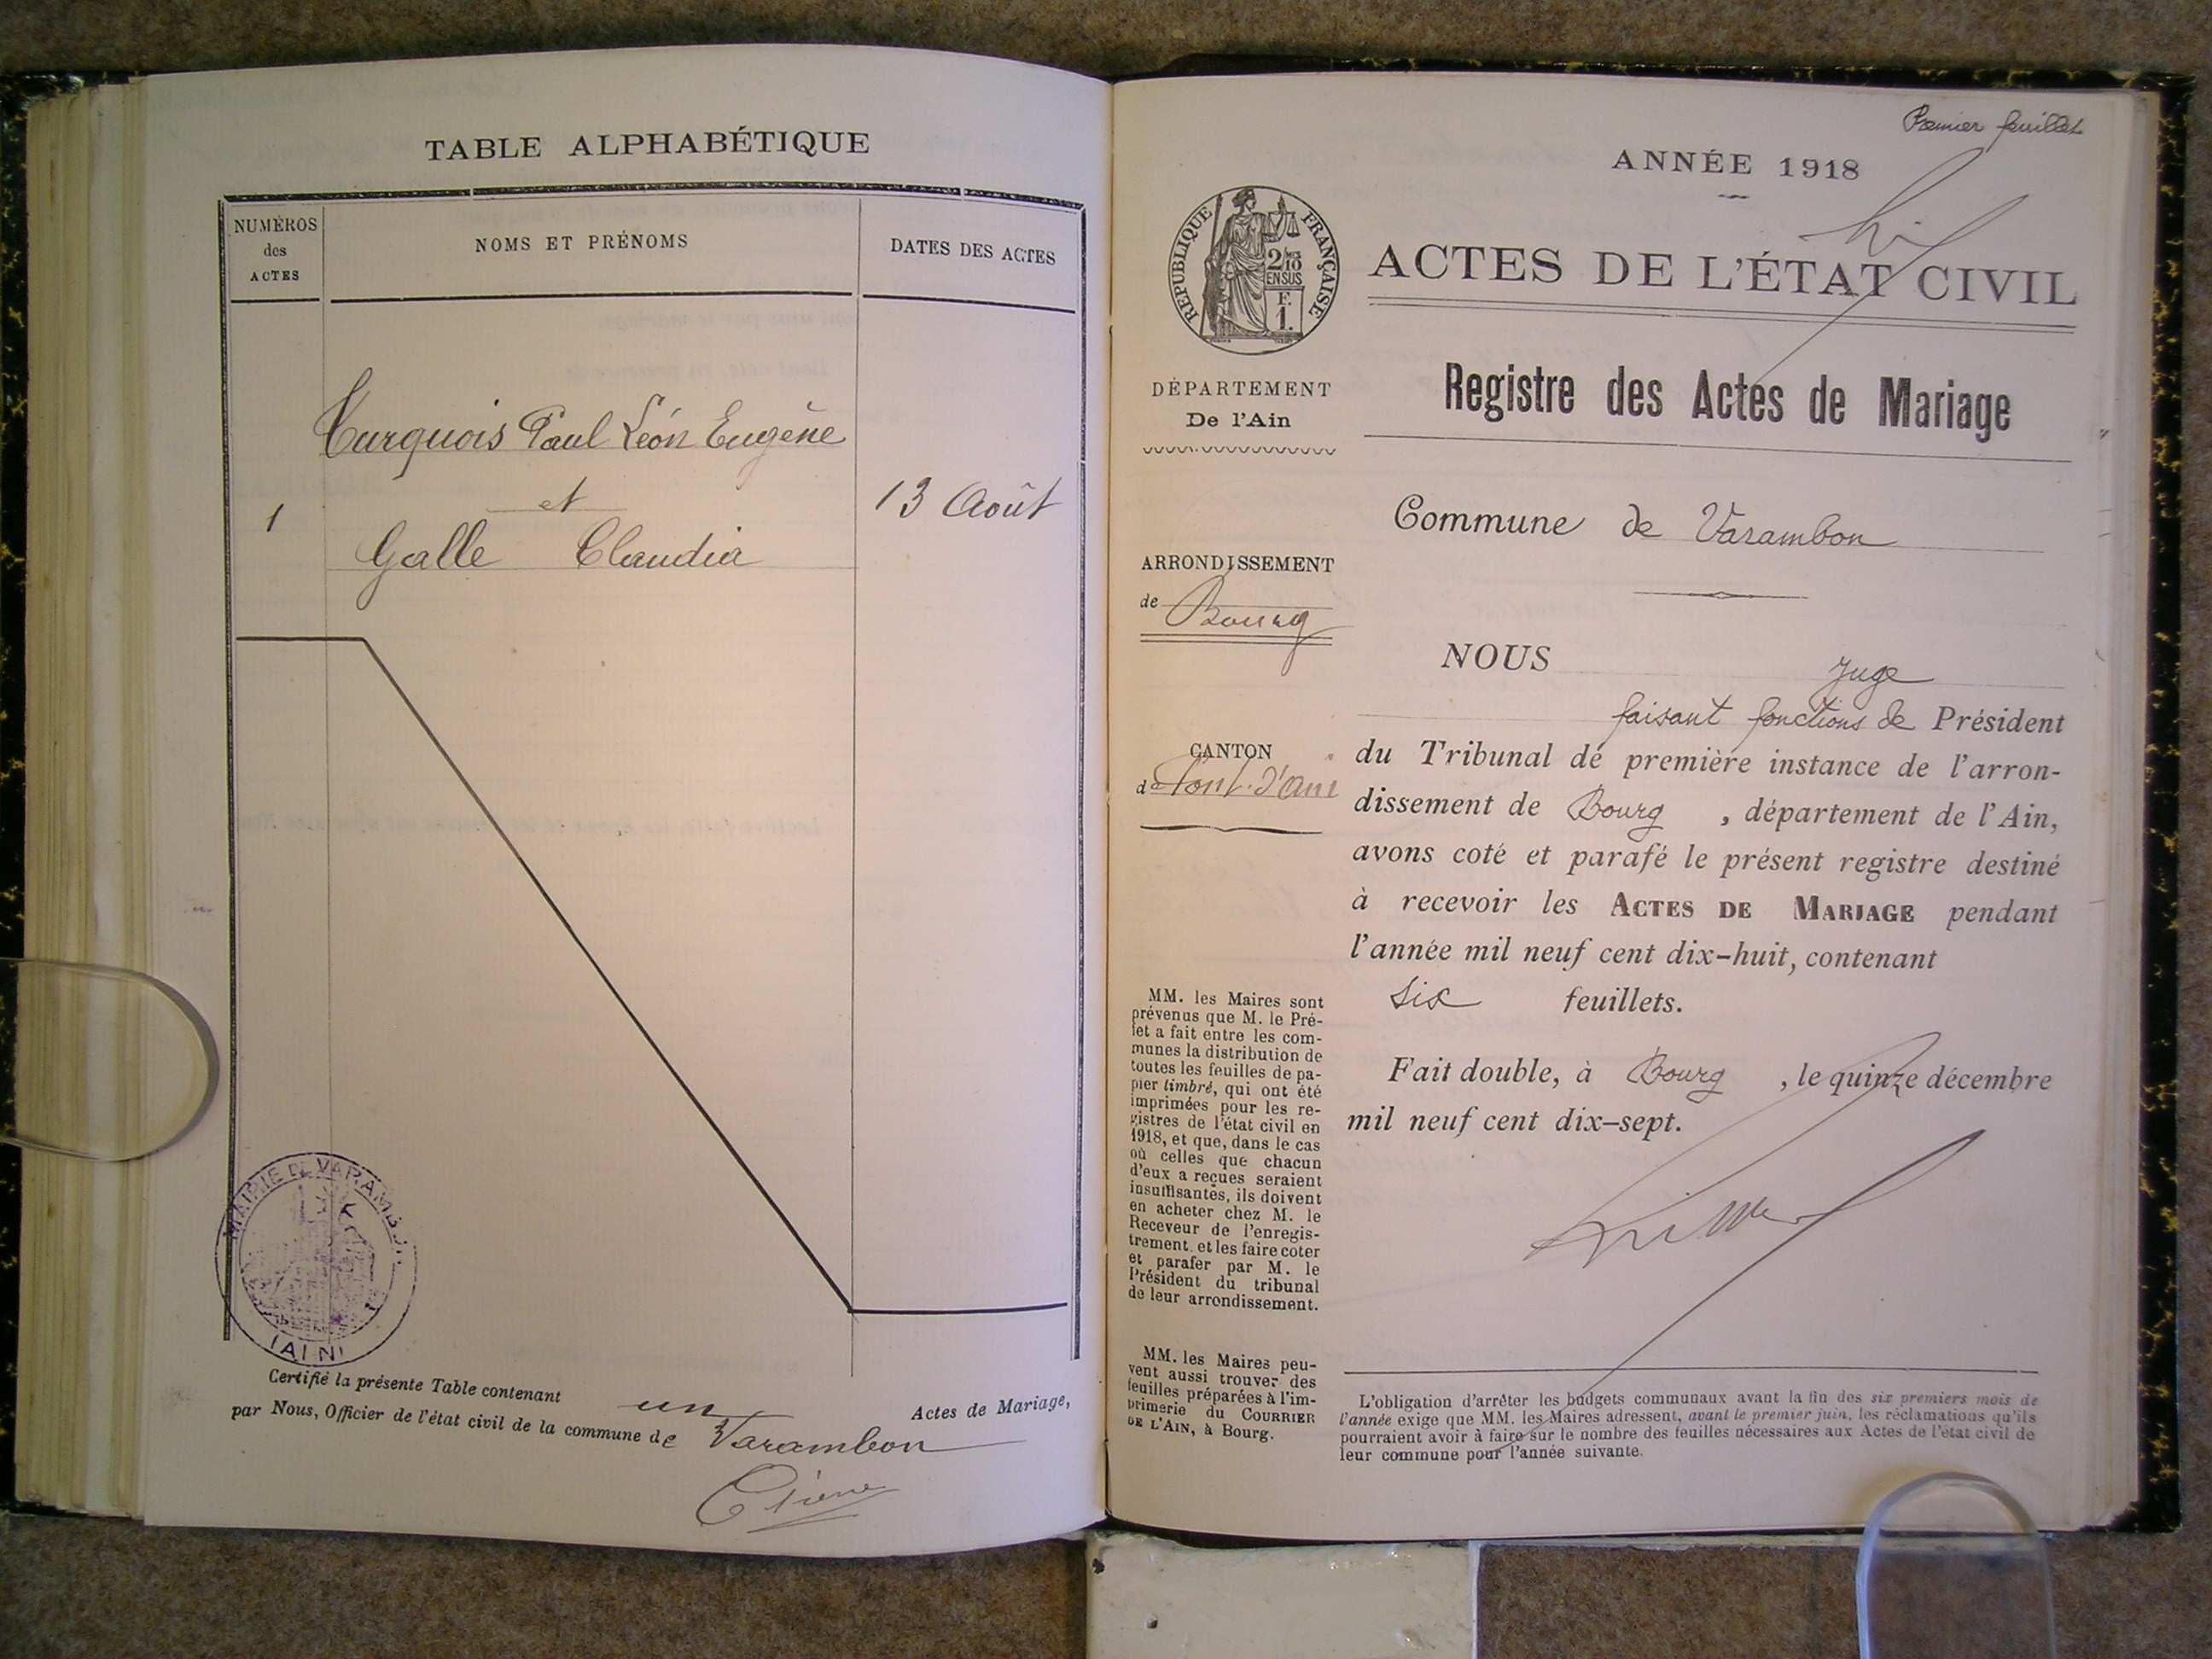 TABLE ALPHABÉTIQUE
NUMÉROS
des
ACTES
NOMS ET PRÉNOMS
DATES DES ACTES
Turquois Paul Léon Eugène
1
et
13 Août
Galle Claudia
MAIRIE DE VARAMBON
(AIN)
Certifié la présente Table contenant un Actes de Mariage,
par Nous, Officier de l'état civil de la commune de Varambon
Premier feuillet
ANNÉE 1918
RÉPUBLIQUE FRANÇAISE
2/10
EN SUS
F.
1.
ACTES DE L'ÉTAT CIVIL
DÉPARTEMENT
De l'Ain
Registre des Actes de Mariage
Commune de Varambon
ARRONDISSEMENT
de Bourg
CANTON
de Pont-d'Ain
NOUS Juge
faisant fonctions de Président
du Tribunal de première instance de l'arron-
dissement de Bourg , département de l'Ain,
avons coté et parafé le présent registre destiné
à recevoir les ACTES DE MARIAGE pendant
l'année mil neuf cent dix-huit, contenant
six feuillets.
Fait double, à Bourg , le quinze décembre
mil neuf cent dix-sept.
MM. les Maires sont
prévenus que M. le Pré-
fet a fait entre les com-
munes la distribution de
toutes les feuilles de pa-
pier timbré, qui ont été
imprimées pour les re-
gistres de l'état civil en
1918, et que, dans le cas
où celles que chacun
d'eux a reçues seraient
insuffisantes, ils doivent
en acheter chez M. le
Receveur de l'enregis-
trement. et les faire coter
et parafer par M. le
Président du tribunal
de leur arrondissement.
MM. les Maires peu-
vent aussi trouver des
feuilles préparées à l'im-
primerie du COURRIER
DE L'AIN, à Bourg.
L'obligation d'arrêter les budgets communaux avant la fin des six premiers mois de
l'année exige que MM. les Maires adressent, avant le premier juin, les réclamations qu'ils
pourraient avoir à faire sur le nombre des feuilles nécessaires aux Actes de l'état civil de
leur commune pour l'année suivante.